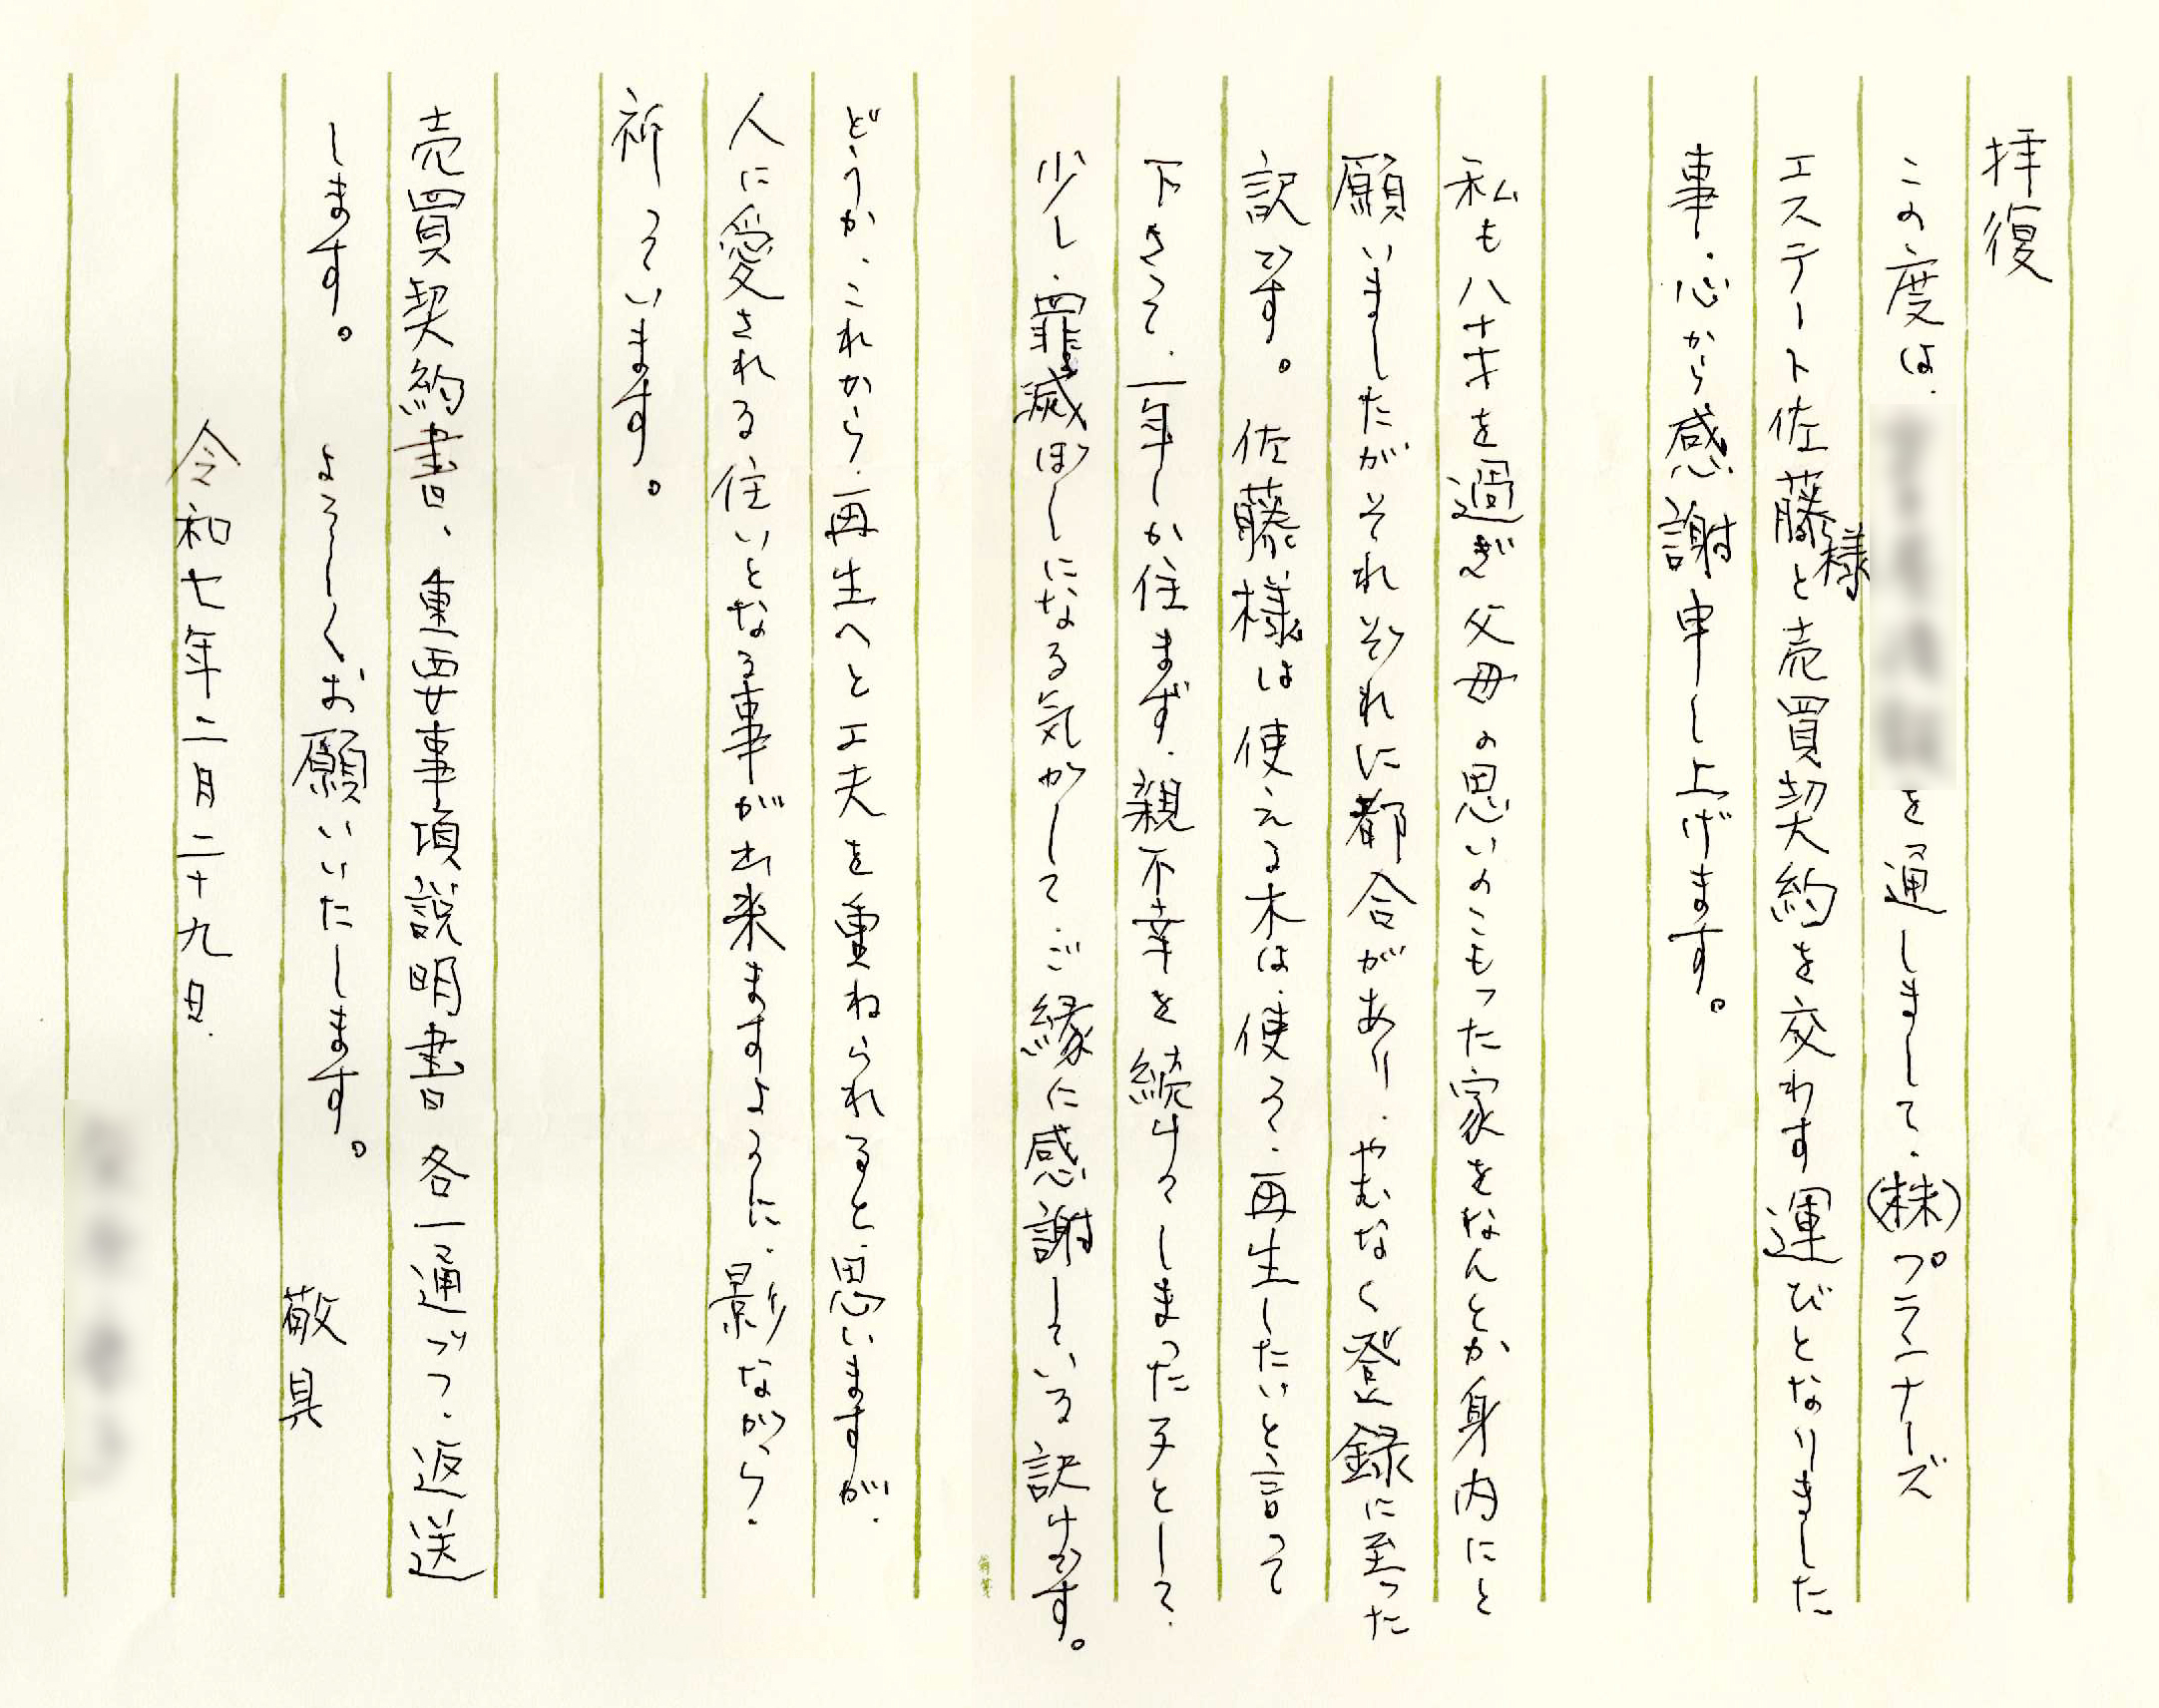 拝復
この度は、を通しまして、(株)プランナーズ
エステート佐藤様と売買契約を交わす運びとなりました
事、心から感謝申し上げます。
私も八十才を過ぎ父母の思いのこもった家をなんとか身内にと
願いましたがそれぞれに都合があり、やむなく登録に至った
訳です。佐藤様は使える木は、使って、再生したいと言って
下さって、一年しか住まず、親不幸を続けてしまった子として、
少し、罪滅ぼしになる気がして、ご縁に感謝している訳けです。
どうか、これから、再生へと工夫を重ねられると、思いますが、
人に愛される住いとなる事が出来ますように、影ながら、
祈っています。
売買契約書、重要事項説明書各一通づつ、返送
します。よろしくお願いいたします。敬具
令和七年二月二十九日.